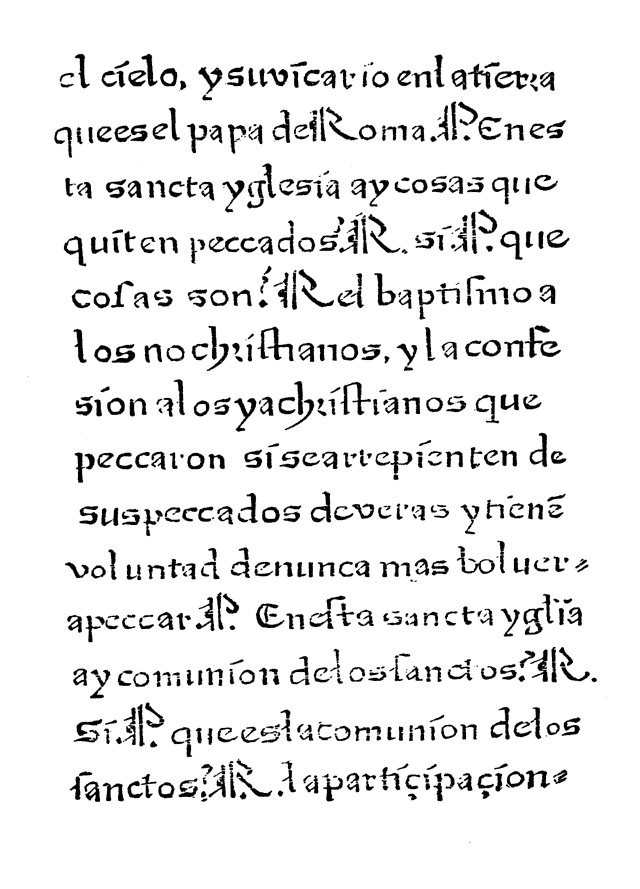 el cíelo, y su vícario en la tíerra
que es el papa de Roma. P. En es
ta sancta yglesía ay cosas que
quíten peccados? R. sí. P. que
coſas son? R el baptiſmo a
los no chríſtianos, y la confe
síon a los ya chríſtíanos que
peccaron sí se arrepíenten de
sus peccados de veras y tienē
voluntad de nunca mas boluer⸗
a peccar. P. En eſta sancta yglīa
ay comuníon de los ſanctos? R.
Sí. P. que es la comuníon de los
ſanctos? R. la partíçípaçíon⸗